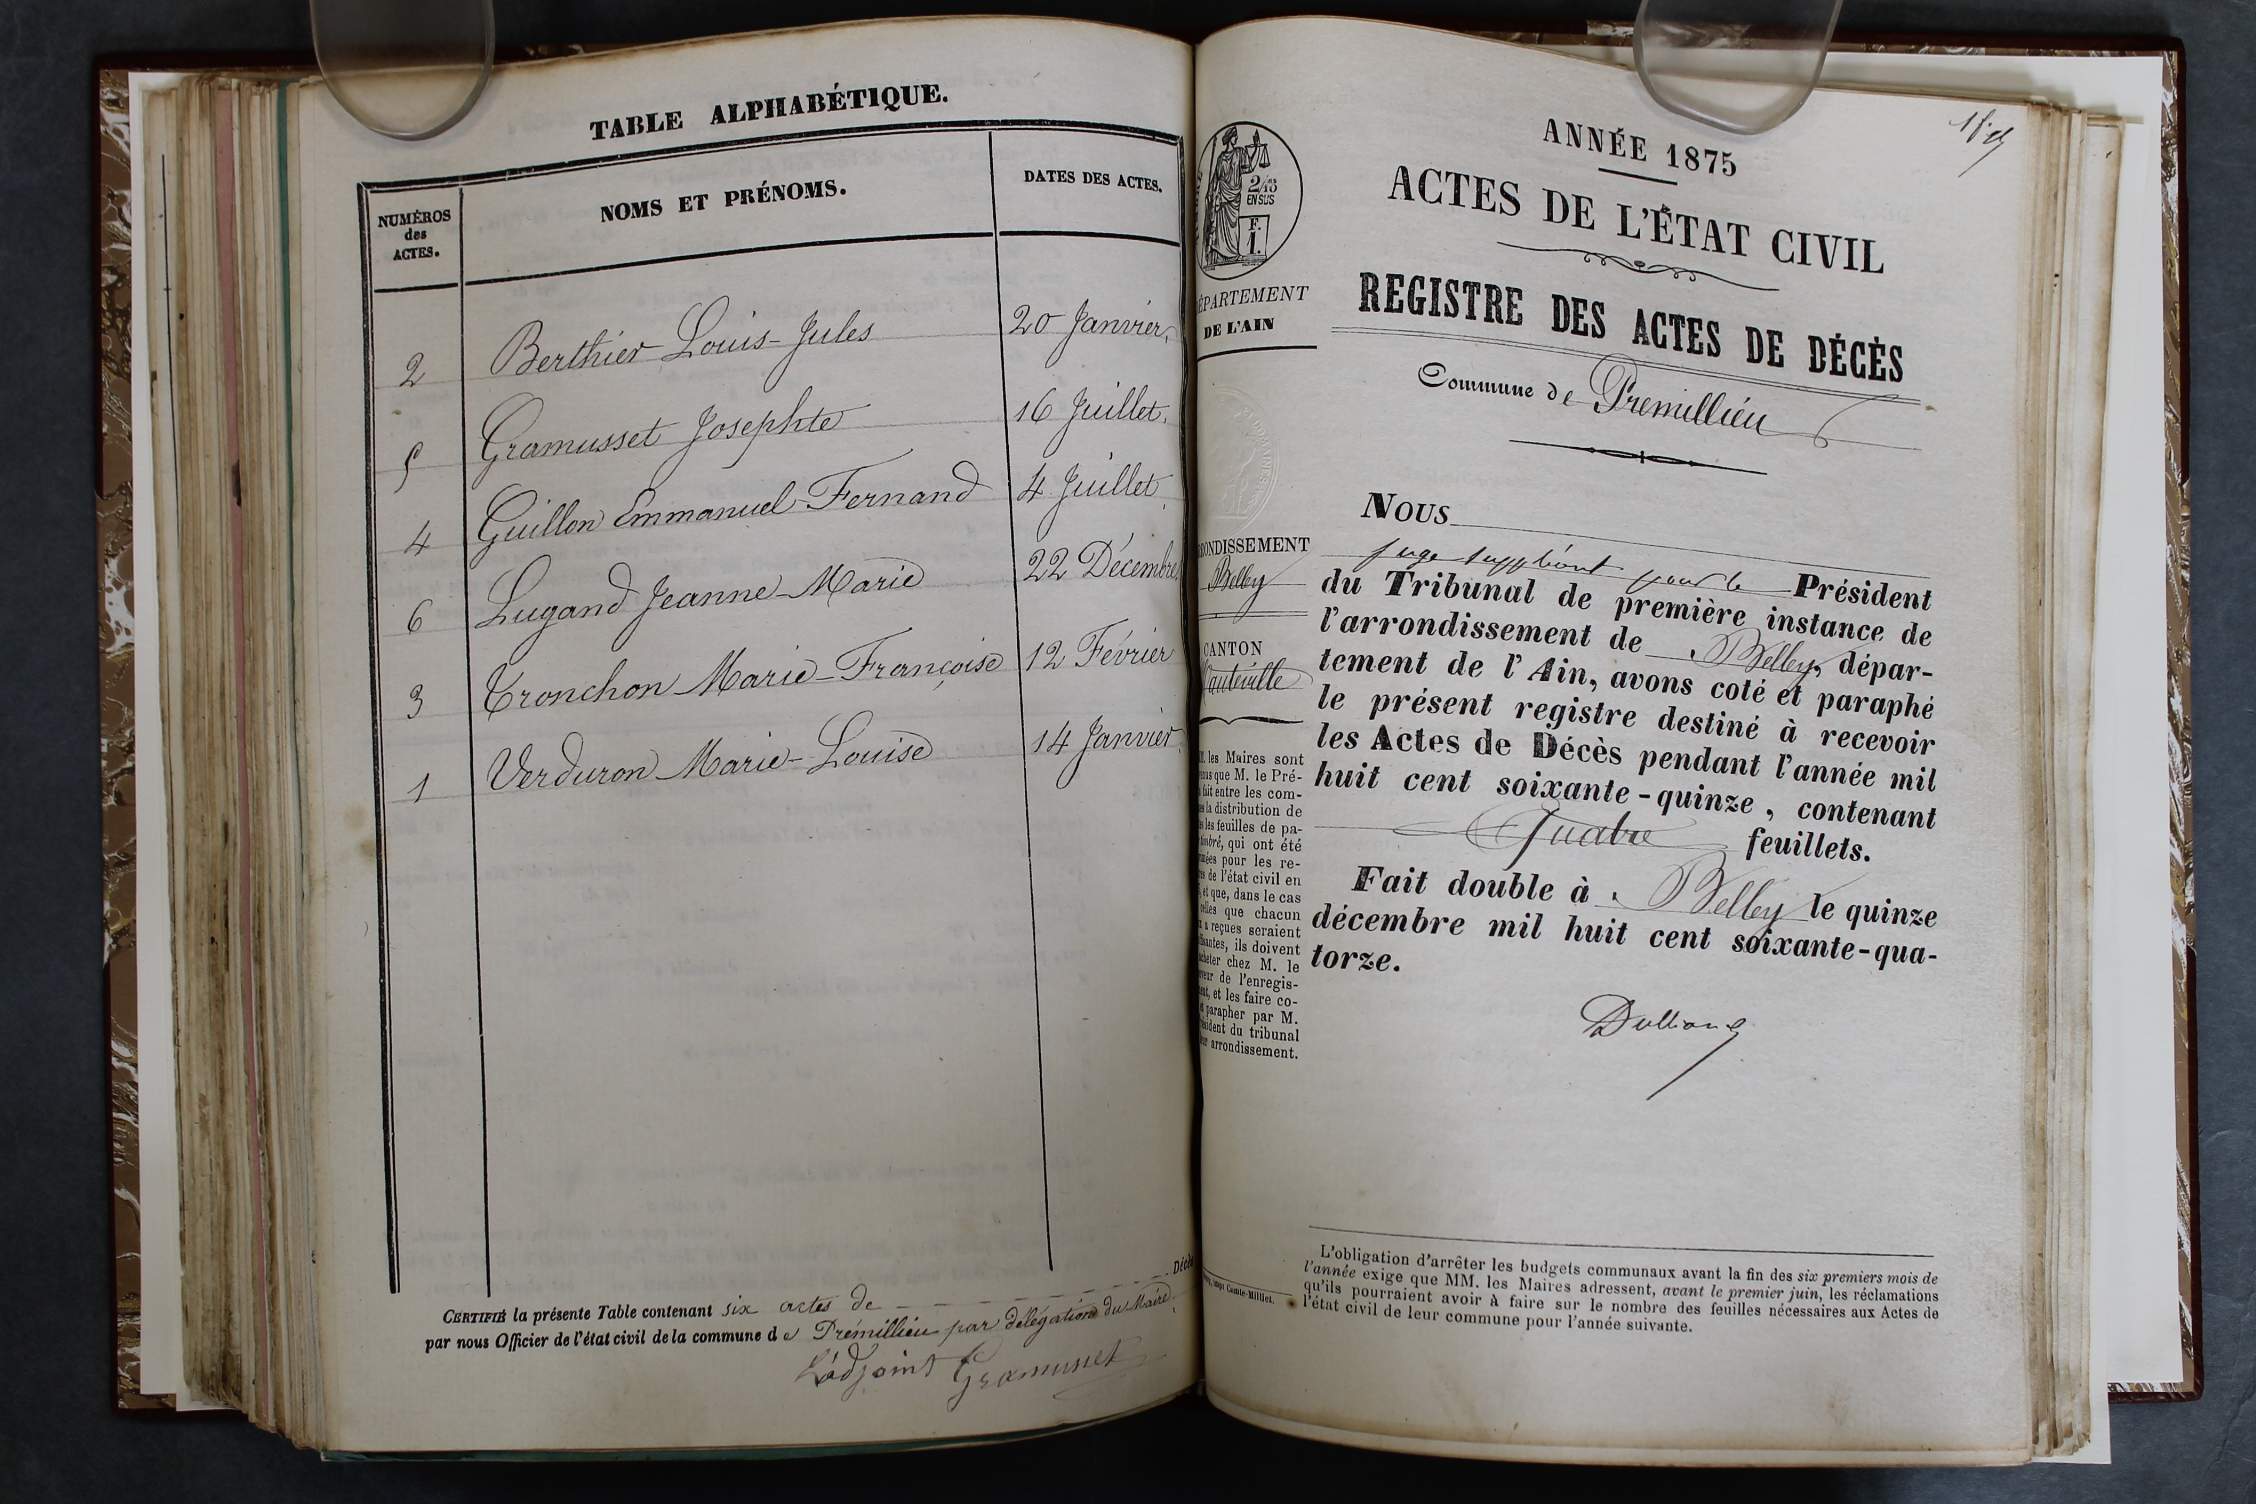 TABLE ALPHABÉTIQUE.
NUMÉROS
des
ACTES.
NOMS ET PRÉNOMS.
DATES DES ACTES.
2 Berthier Louis-Jules 20 Janvier,
5 Gramusset Josephte 16 Juillet.
4 Guillon Emmanuel-Fernand 4 Juillet
6 Lugand Jeanne-Marie 22 Décembre
3 Tronchon Marie-Françoise 12 Février
1 Verduron Marie-Louise 14 Janvier
Décès
CERTIFIÉ la présente Table contenant six actes de
par nous Officier de l'état civil de la commune de Prémillieu par délégation du Maire
L'adjoint Gramusset
2/10
EN SUS
F.
1.
ÉPARTEMENT
DE L'AIN
ONDISSEMENT
Belley
CANTON
auteville
les Maires sont
que M. le Pré-
fait entre les com-
la distribution de
les feuilles de pa-
timbré, qui ont été
pour les re-
de l'état civil en
, et que, dans le cas
celles que chacun
a reçues seraient
, ils doivent
acheter chez M. le
de l'enregis-
, et les faire co-
parapher par M.
président du tribunal
arrondissement.
Comte-Milliet.
ANNÉE 1875
ACTES DE L'ÉTAT CIVIL
REGISTRE DES ACTES DE DÉCÈS
Commune de Premillieu
NOUS
juge suppléant pour le Président
du Tribunal de première instance de
l'arrondissement de Belley, dépar-
tement de l'Ain, avons coté et paraphé
le présent registre destiné à recevoir
les Actes de Décès pendant l'année mil
huit cent soixante-quinze, contenant
Quatre feuillets.
Fait double à Belley le quinze
décembre mil huit cent soixante-qua-
torze.
L'obligation d'arrêter les budgets communaux avant la fin des six premiers mois de
l'année exige que MM. les Maires adressent, avant le premier juin, les réclamations
qu'ils pourraient avoir à faire sur le nombre des feuilles nécessaires aux Actes de
l'état civil de leur commune pour l'année suivante.